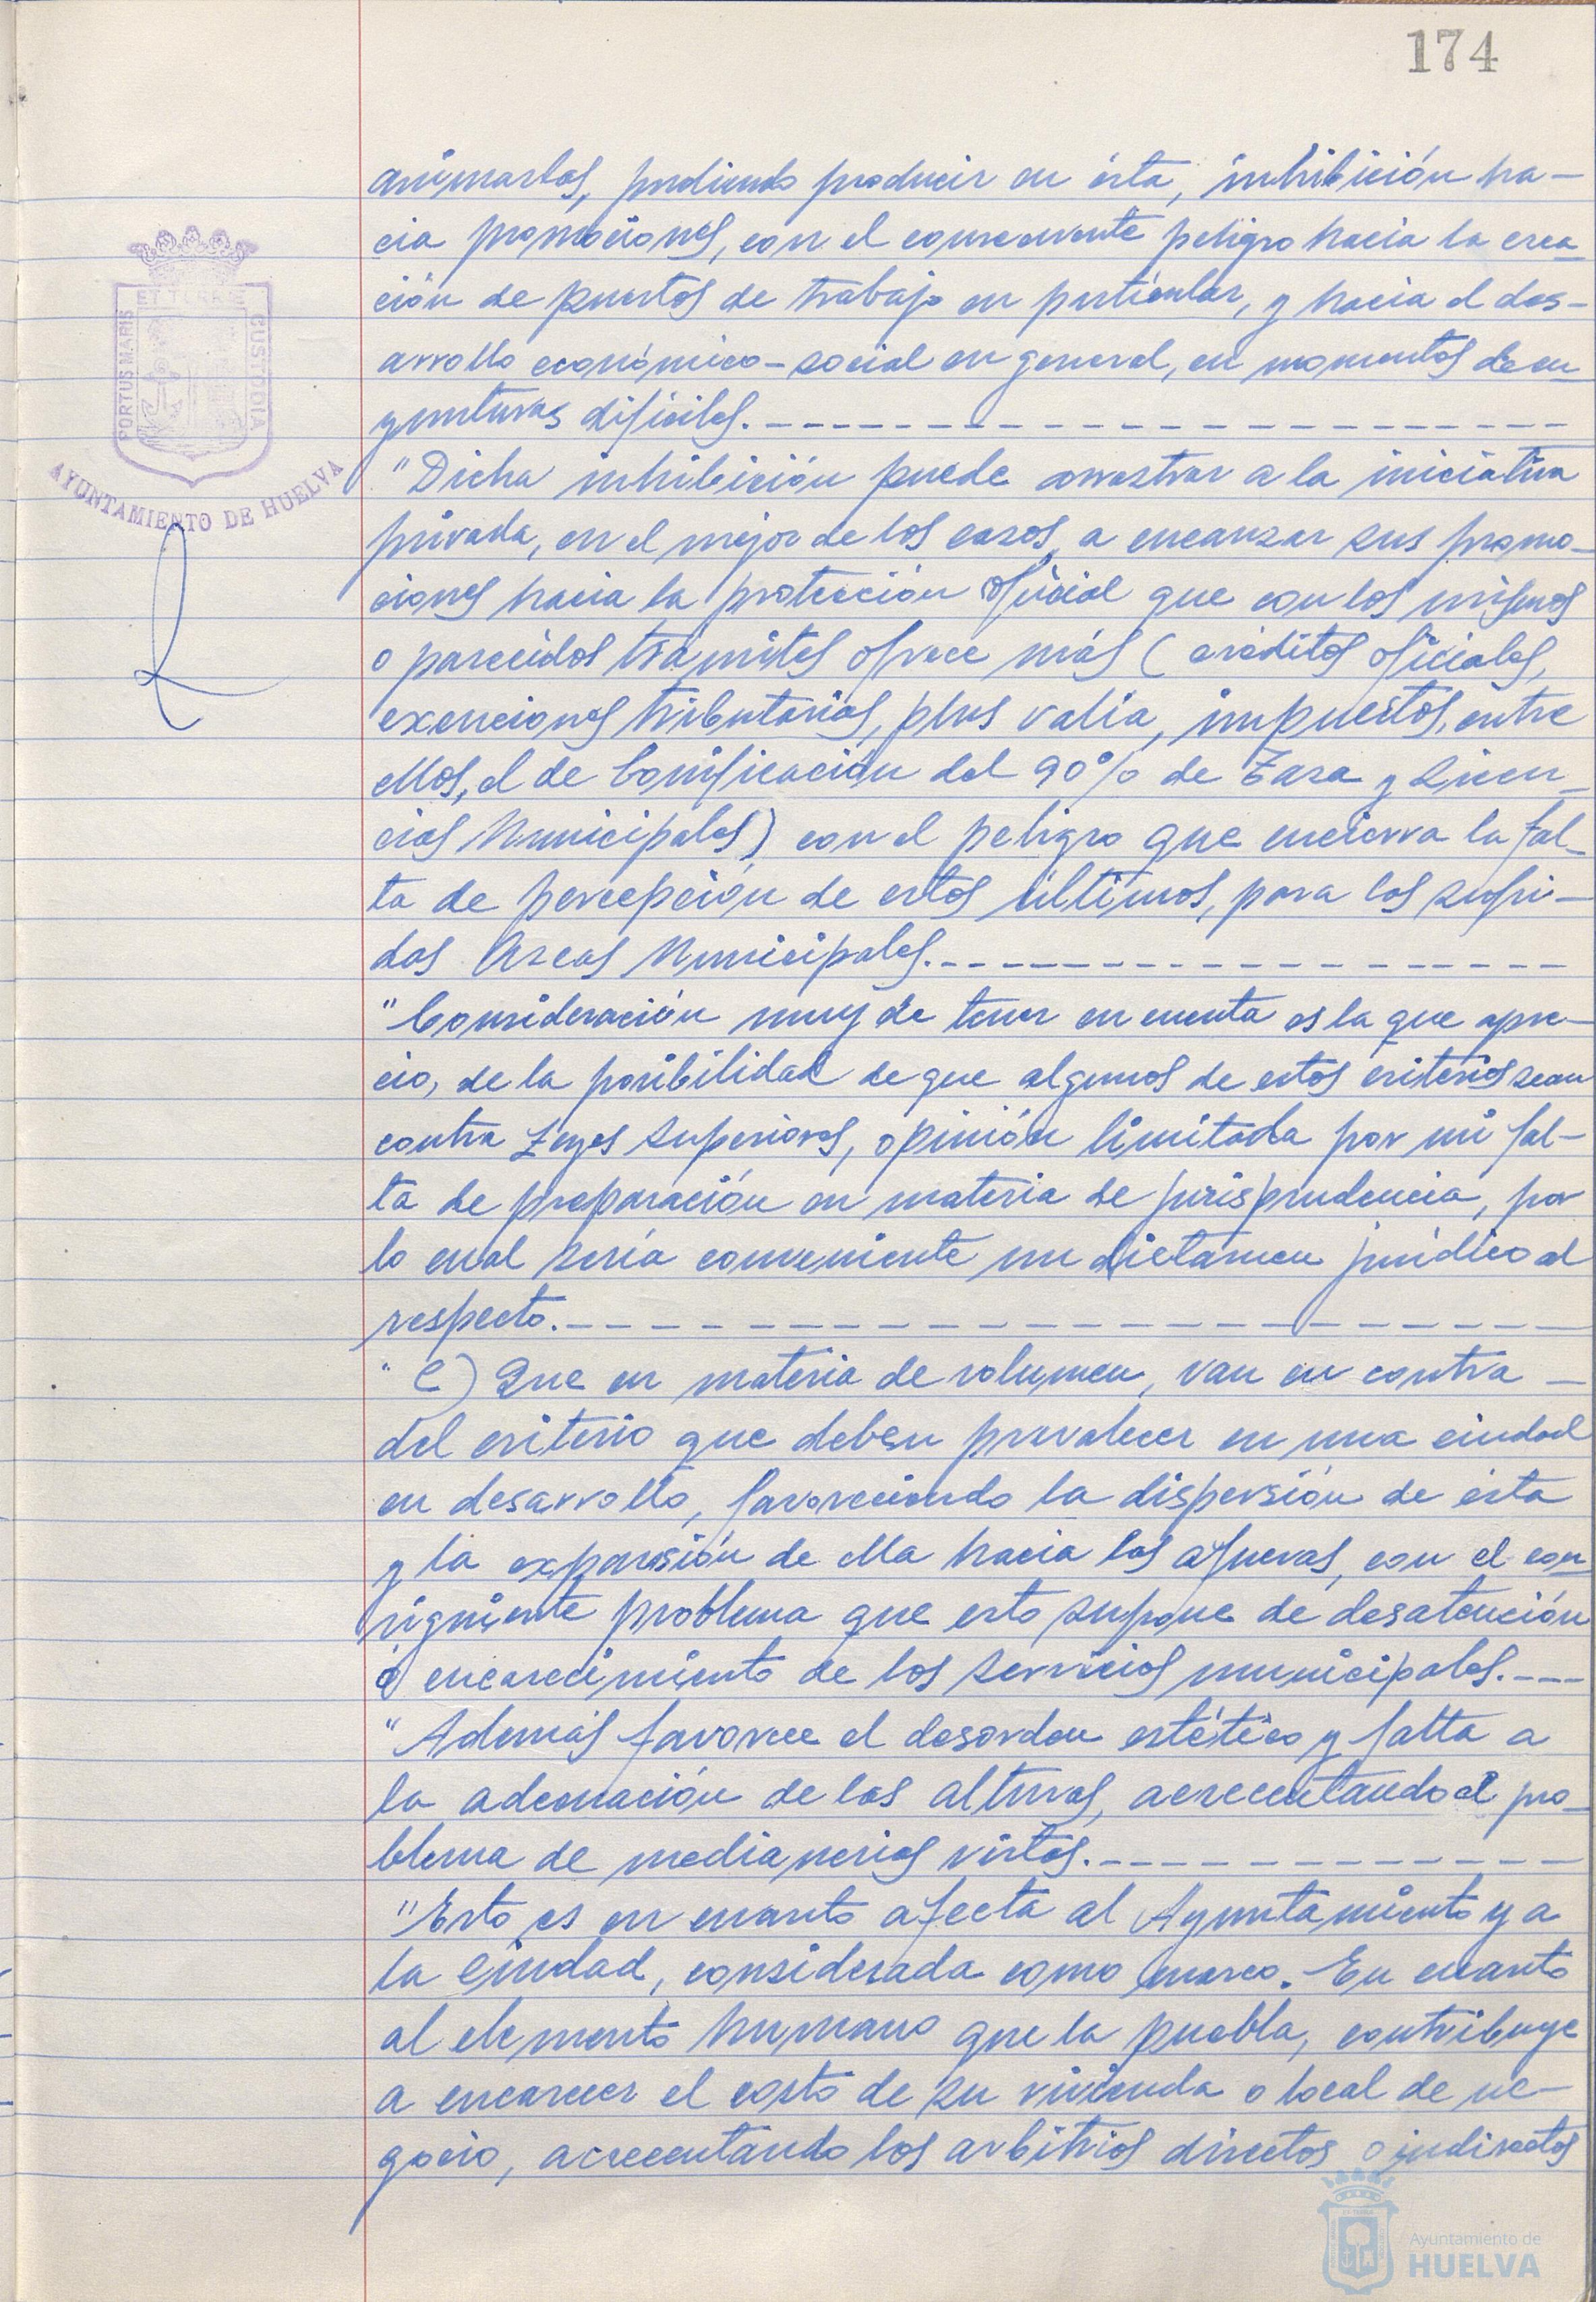 174
animarlos, pudiendo producir en ésta, inhibición ha-
cia promociones, con el consecuente peligro hacia la crea
ción de puestos de trabajo en particular, y hacia el des-
arrollo económico-social en general, en momentos de co
yunturas difíciles.
"Dicha inhibición puede arrastrar a la iniciativa
privada, en el mejor de los casos, a encauzar sus promo-
ciones hacia la protección oficial que con los mismos
o parecidos trámites ofrece más (créditos oficiales,
exenciones tributarias, plus valia, impuestos, entre
ellos, el de bonificación del 90% de Tasa y Licen-
cias Municipales) con el peligro que encierra la fal-
ta de percepción de estos últimos, para las sufri-
das Arcas Municipales.
"Consideración muy de tener en cuenta es la que apre-
cio, de la posibilidad de que algunos de estos criterios sean
contra Leyes Superiores, opinión limitada por mi fal-
ta de preparación en materia de jurisprudencia, por
lo cual sería conveniente un dictamen jurídico al
respecto.
"C) Que en materia de volumen, van en contra -
del criterio que deben prevalecer en una ciudad
en desarrollo, favoreciendo la dispersión de ésta
y la expansión de ella hacia las afueras, con el con
siguiente problema que esto supone de desatención
ó encarecimiento de los servicios municipales.
"Además favorece el desorden estético y falta a
la adecuación de las alturas, acrecentando el pro-
blema de medianerias vistas.
"Esto es en cuanto afecta al Ayuntamiento y a
la Ciudad, considerada como marco. En cuanto
al elemento humano que la puebla, contribuye
a encarecer el costo de su vivienda o local de ne-
gocio, acrecentando los arbitrios directos o indirectos
PORTUS MARIS
ET TERRAE
CUSTODIA
AYUNTAMIENTO DE HUELVA
Ayuntamiento de
HUELVA